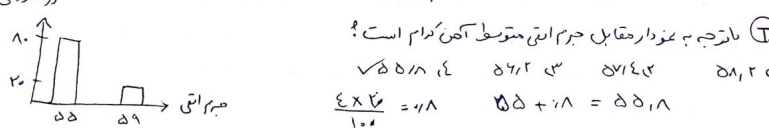 ① باتوجه به نمودار مقابل جرم اتمی متوسط آهن کدام است؟
۵۸,۲ (۱ ۵۷,۴ (۲ ۵۶,۲ (۳ ۵۵,۸ (۴ ✓
۴×۲۰/۱۰۰ = ۰,۸ ۵۵ + ۰,۸ = ۵۵,۸
۸۰
۲۰
۵۵ ۵۹ جرم اتمی